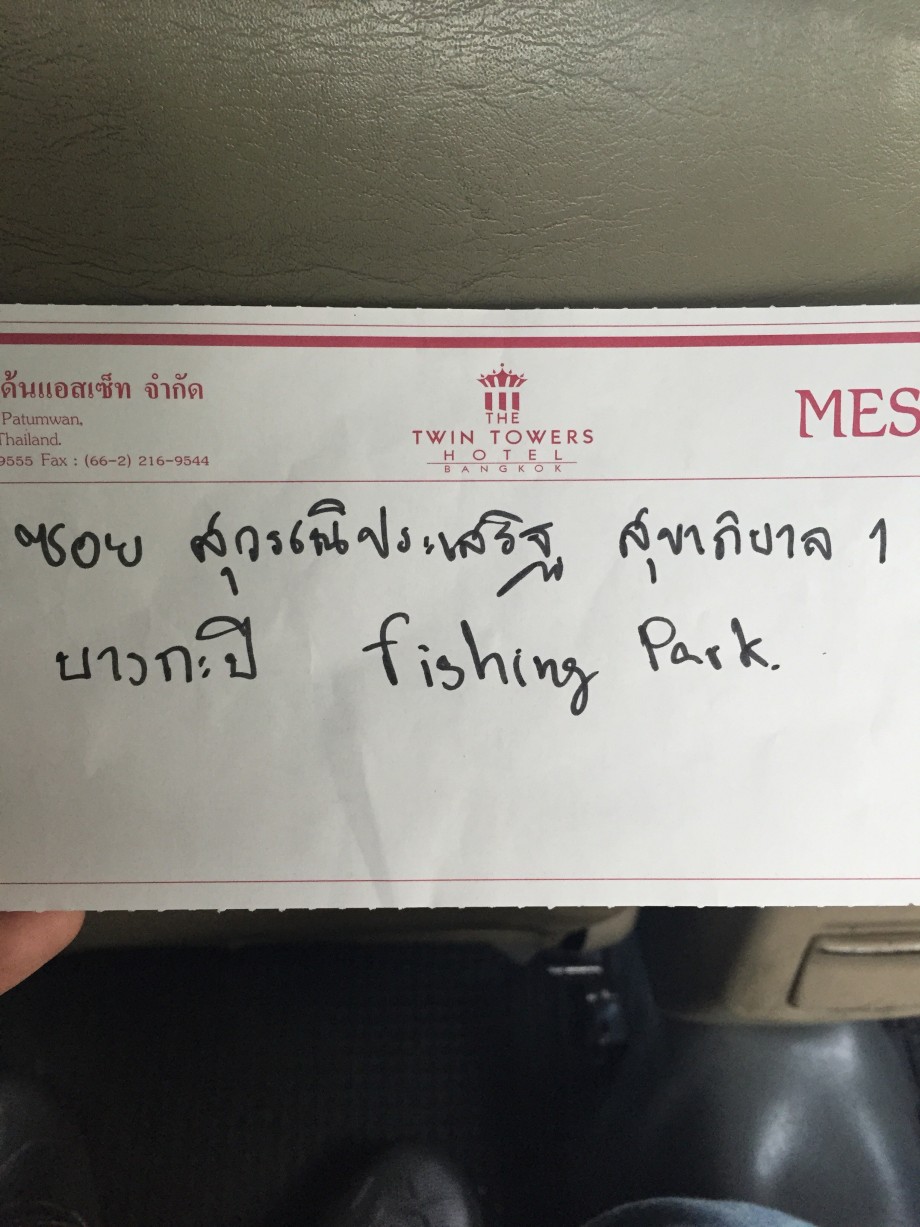 ด้นแอสเซ็ท จำกัด
Patumwan,
Thailand.
9555 Fax : (66-2) 216-9544
THE
TWIN TOWERS
HOTEL
BANGKOK
MES
ซอย สุวรรณีประเสริฐ สุขาภิบาล 1
บางกะปิ fishing Park.